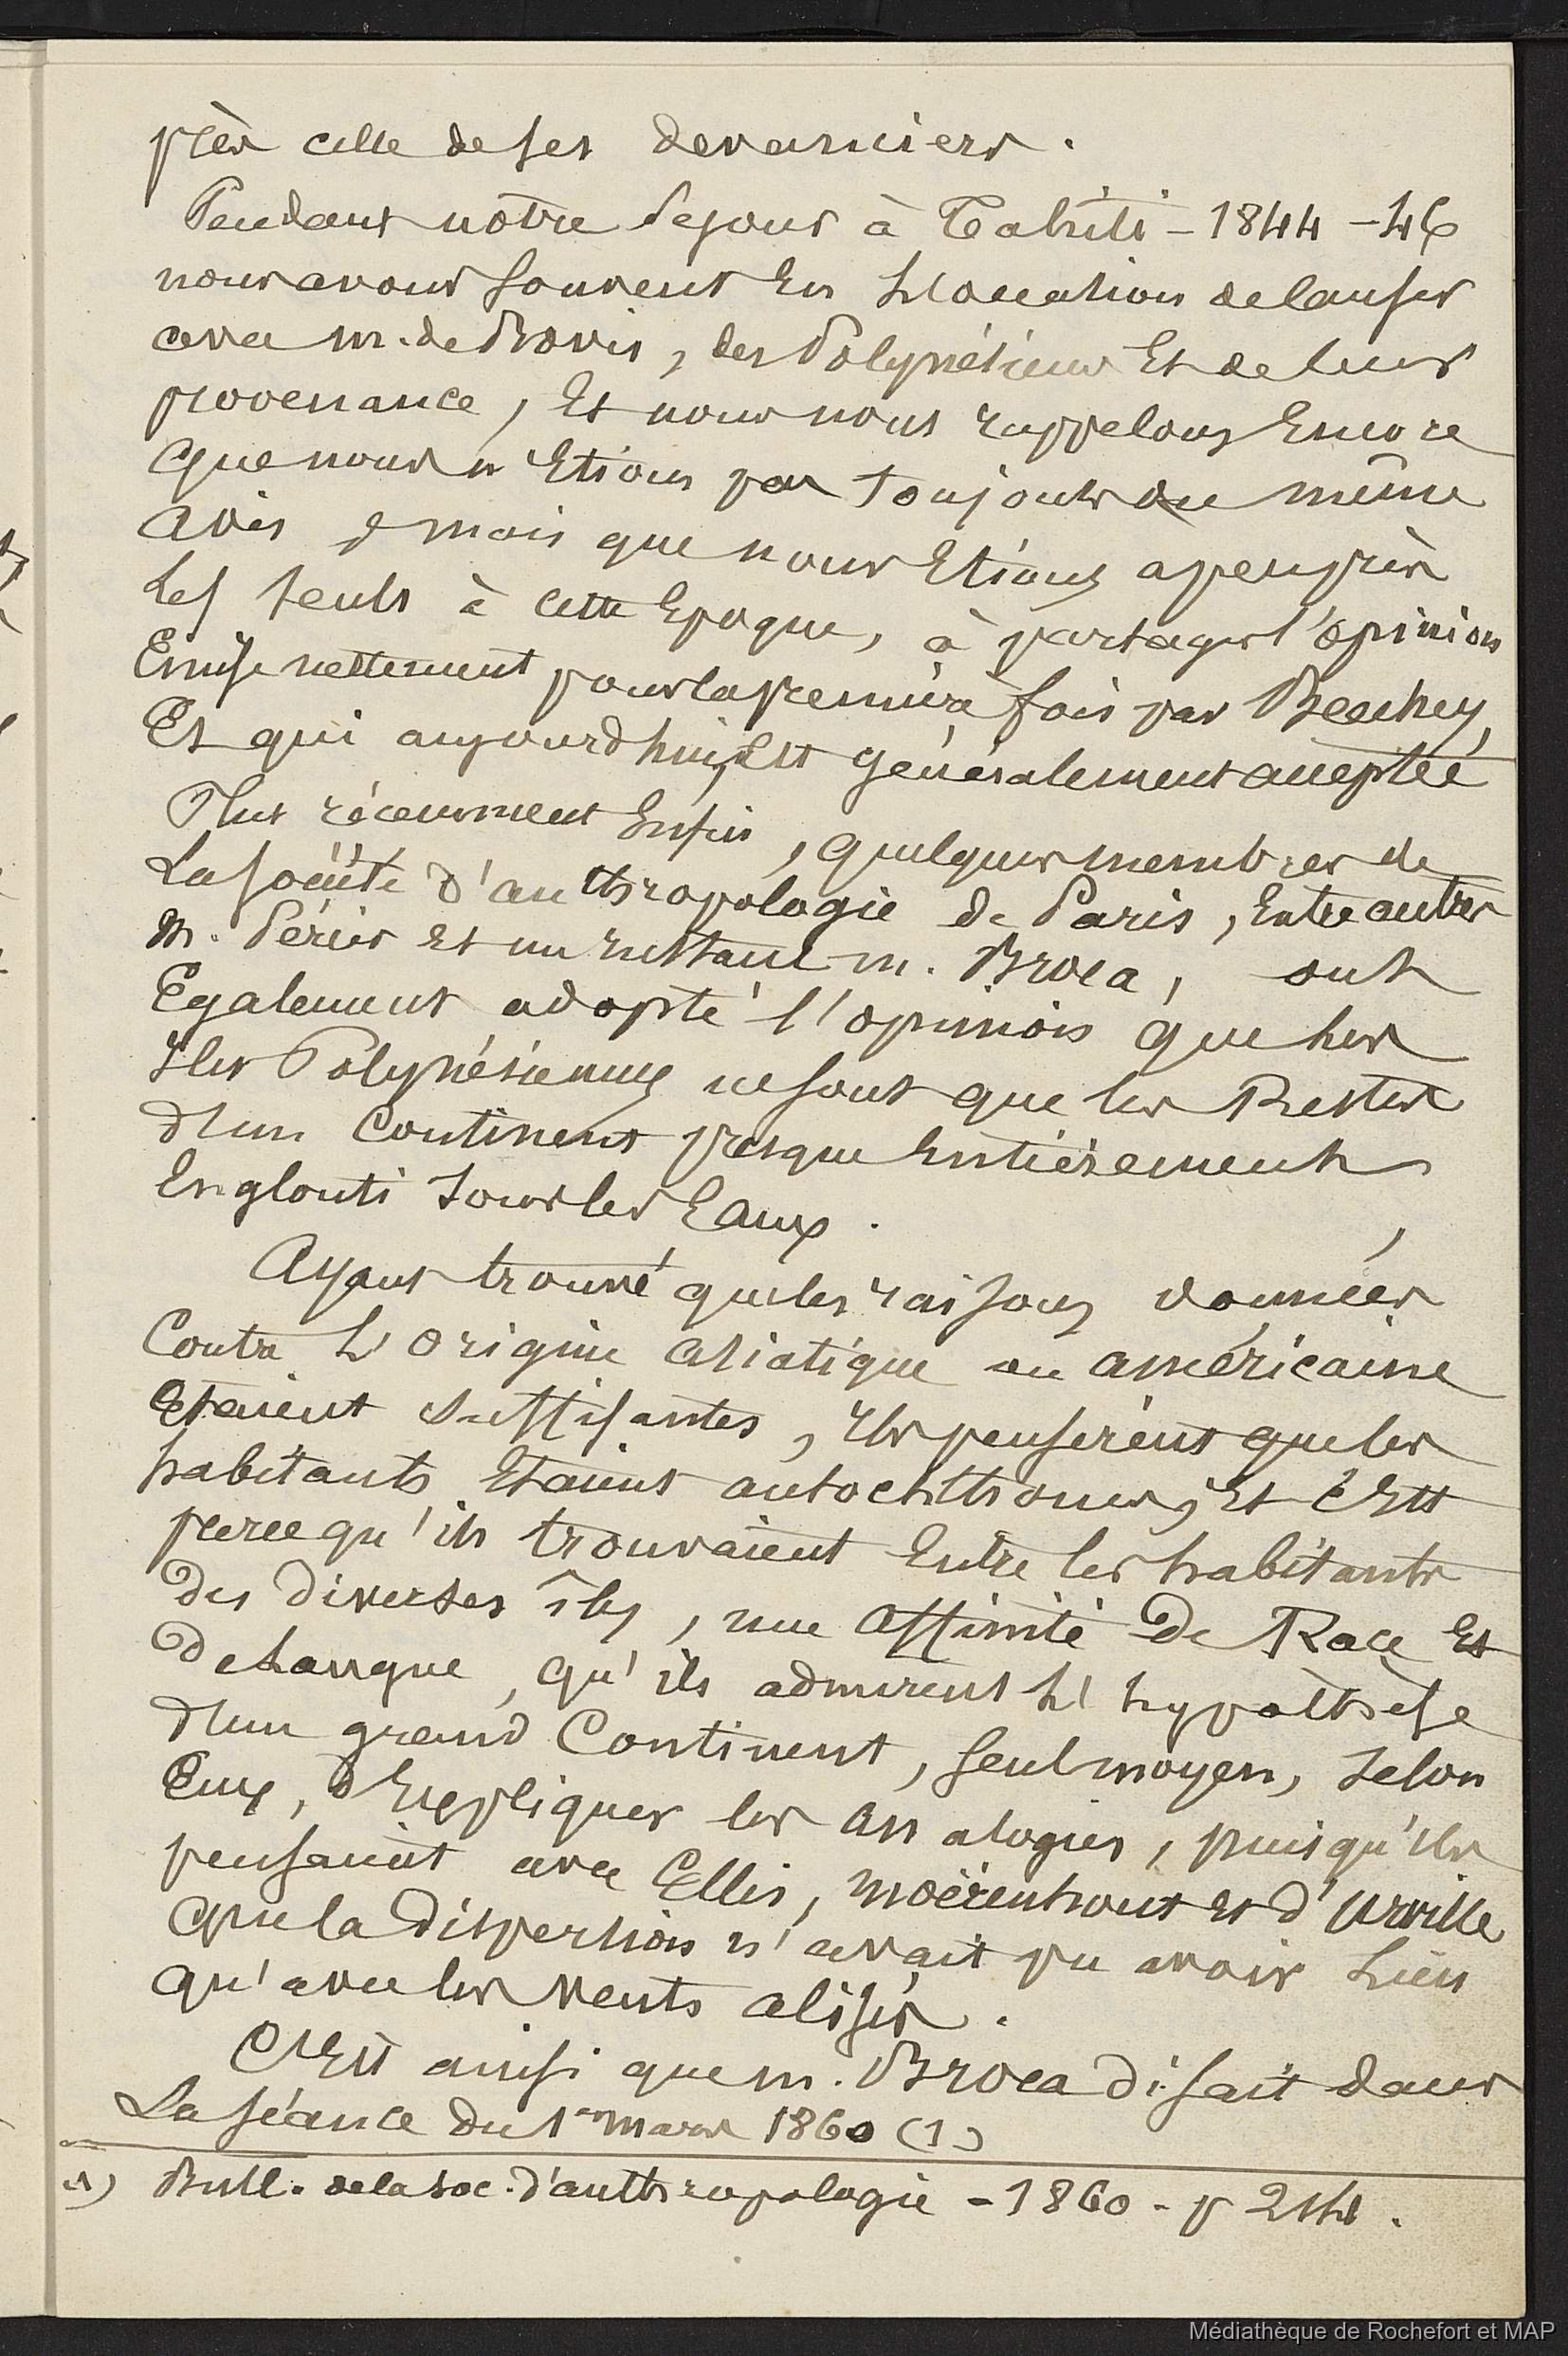 près celle de ses devanciers.
Pendant notre sejour à Tahiti - 1844 - 46
nous avons souvent eu l'occation de causer
avec m. de Bovis, des Polynésiens et de leur
provenance, et nous nous rappelons encore
que nous n'etions pas toujours du même
avis, mais que nous etions apeuprès
les seuls à cette epoque, à partager l'opinion
emise nettement pour la première fois par Beechey,
et qui aujourd'hui, est généralement acceptée
Plus récemment enfin, quelques membres de
la société d'anthropologie de Paris, entre autres
m. Périer et un instant m. Broca, ont
egalement adopté l'opinion que les
Iles Polynésiennes ne sont que les Restes
d'un continent presque entièrement
englouti sous les eaux.
Ayant trouvé que les raisons données
contre l'origine asiatique ou américaine
etaient suffisantes, ils pensèrent que les
habitants etaient autochthones, et c'est
parce qu'ils trouvaient entre les habitants
des diverses îles, une affinité de Race et
de Langue, qu'ils admirent l'hypothèse
d'un grand Continent, seul moyen, selon
eux, d'expliquer les analogies, puisqu'ils
pensaient avec Ellis, moërenhout et d'urville
que la dispersion n'avait pu avoir lieu
qu'avec les vents alisés.
C'est ainsi que m. Broca disait dans
La séance du 1er mars 1860 (1)
(1) Bull. de la soc. d'anthropologie - 1860 - p
Médiathèque de Rochefort et MAP